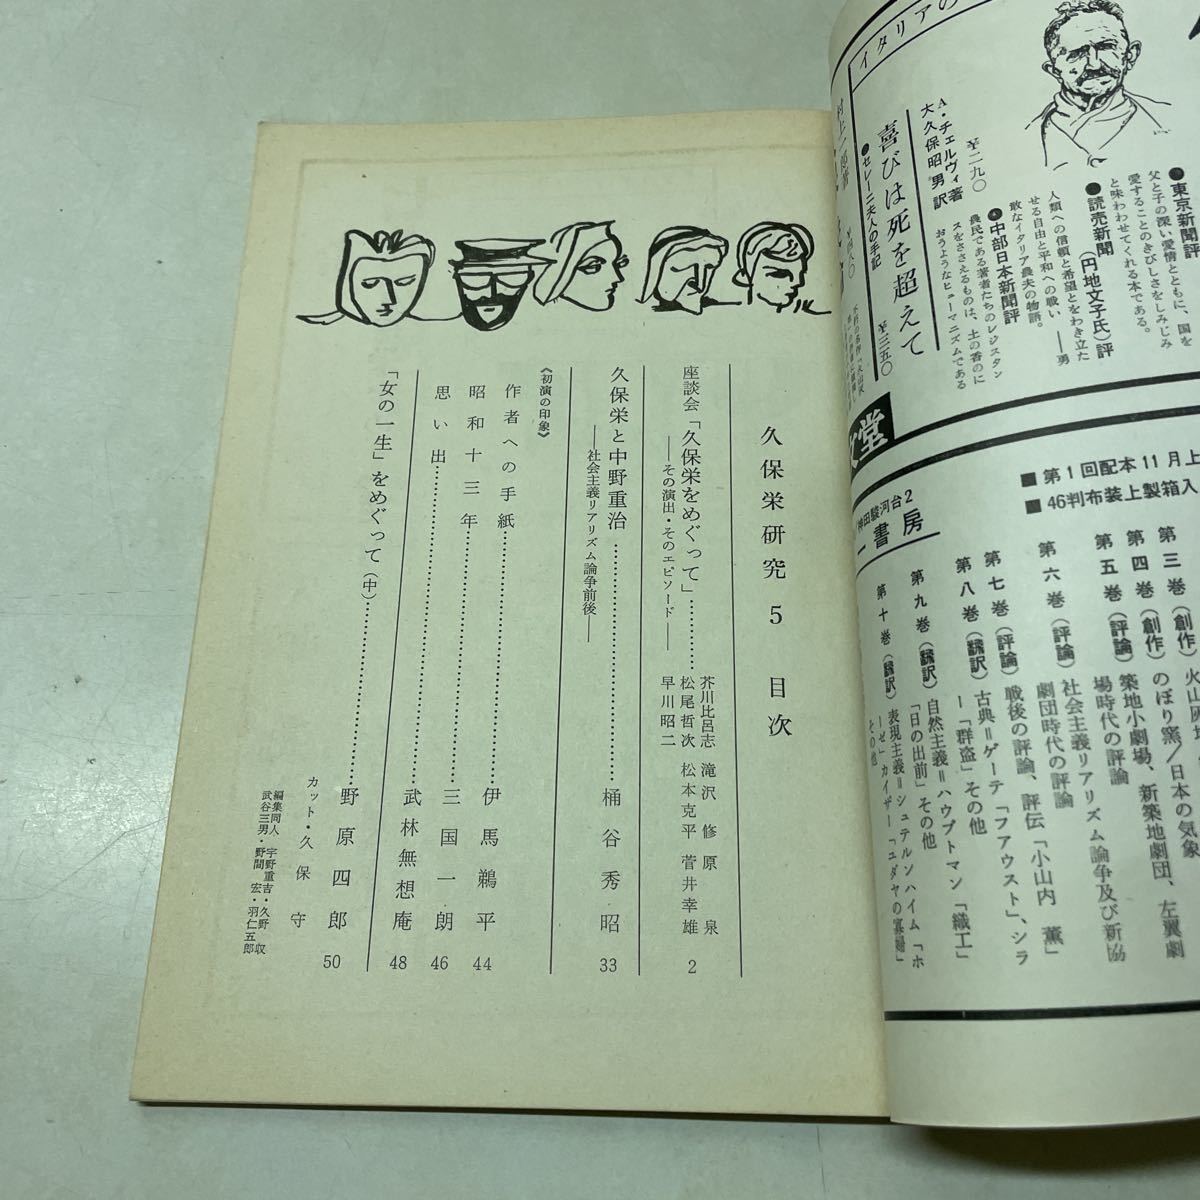 イタリアの
喜びは死を超えて
●セレーニ夫人の手記
¥三五〇
A・チェルヴィ著
大久保昭男訳
¥二九〇
●東京新聞評
父と子の深い愛情とともに、国を
愛することのきびしさをしみじみ
と味わわせてくれる本である。
●読売新聞(円地文子氏)評
人類への信頼と希望とをわき立た
せる自由と平和への戦い――勇
敢なイタリア農夫の物語。
●中部日本新聞評
農民である著者たちのレジスタン
スをささえるものは、土の香のに
おうようなヒューマニズムである
村上一郎著
¥四八〇
■第1回配本11月上
■46判布装上製箱入
神田駿河台2
一書房
第三巻(創作)火山灰地
第四巻(創作)のぼり窯/日本の気象
第五巻(評論)築地小劇場、新築地劇団、左翼劇
場時代の評論
第六巻(評論)社会主義リアリズム論争及び新協
劇団時代の評論
第七巻(評論)戦後の評論、評伝「小山内薫」
第八巻(飜訳)古典=ゲーテ「ファウスト」、シラ
ー「群盗」その他
第九巻(飜訳)自然主義=ハウプトマン「織工」
「日の出前」その他
第十巻(飜訳)表現主義=シュテルンハイム「ホ
ーゼ」カイザー「ユダヤの寡婦」
その他
久保栄研究 5 目次
座談会「久保栄をめぐって」…………
――その演出・そのエピソード――
芥川比呂志 滝沢修 原泉
松尾哲次 松本克平 菅井幸雄
早川昭二
2
久保栄と中野重治…………桶谷秀昭 33
――社会主義リアリズム論争前後――
《初演の印象》
作者への手紙…………伊馬鵜平 44
昭和十三年…………三国一朗 46
思い出…………武林無想庵 48
「女の一生」をめぐって(中)…………野原四郎 50
カット・久保守
編集同人 宇野重吉・久野収
武谷三男・野間宏・羽仁五郎